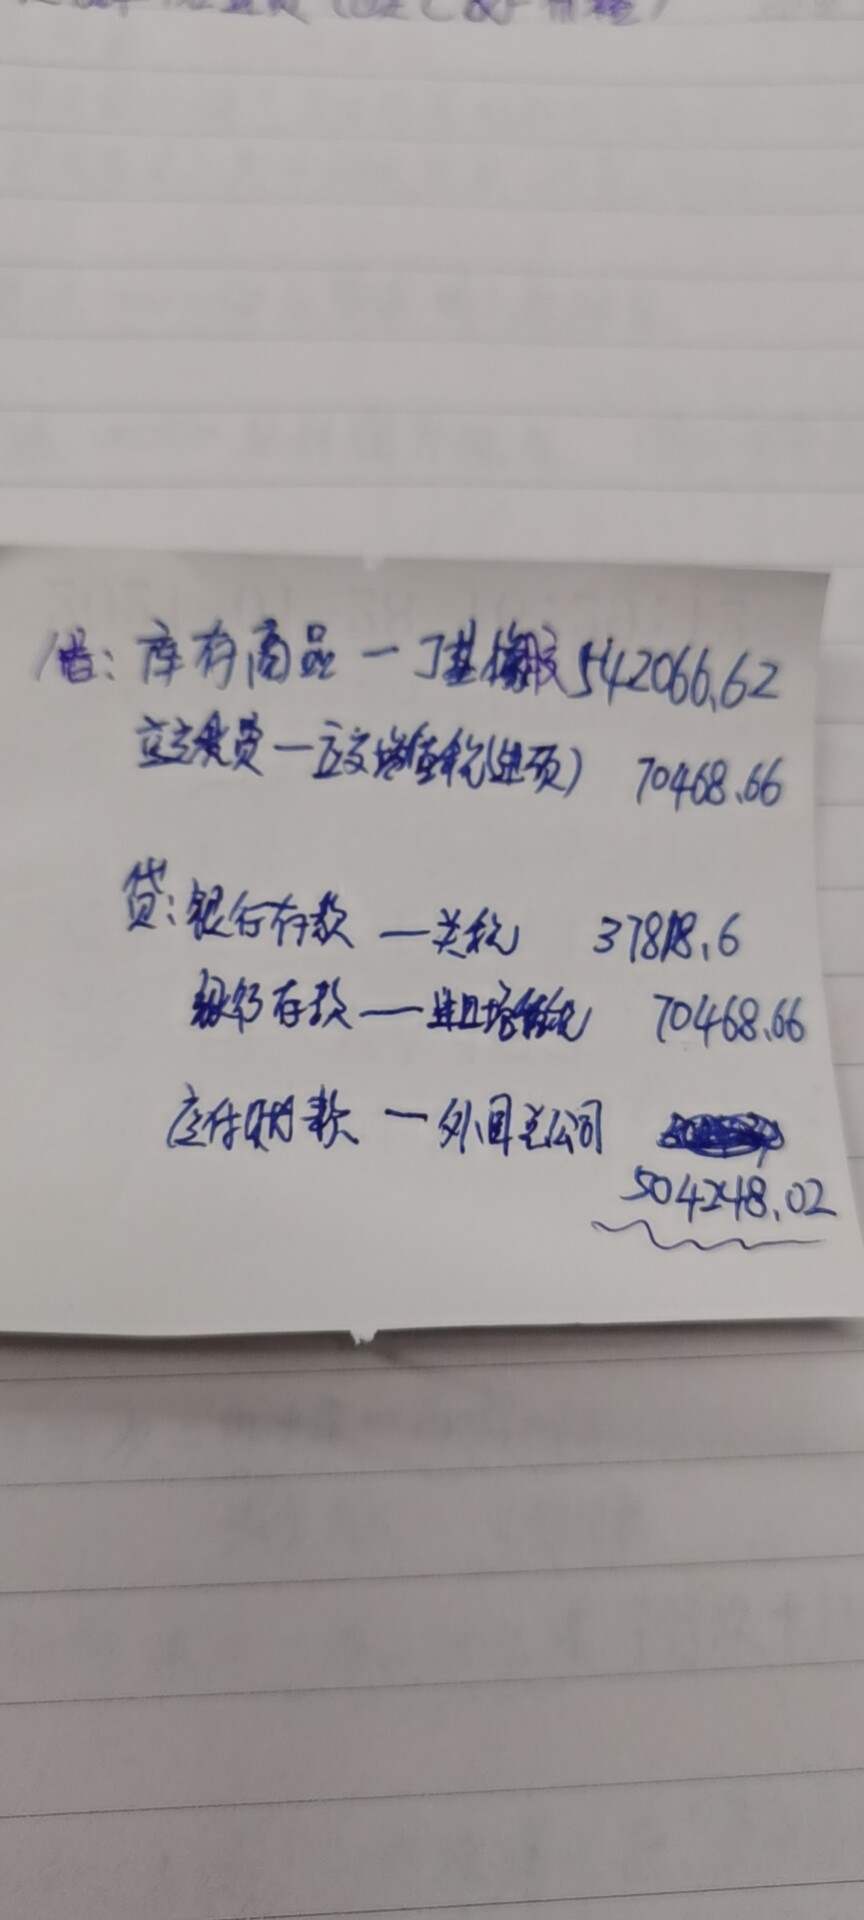 借: 库存商品 — 丁基橡胶 542066.62
应交税费 — 应交增值税(进项) 70468.66
贷: 银行存款 — 关税 37818.6
银行存款 — 进口增值税 70468.66
应付账款 — 外国总公司
504248.02